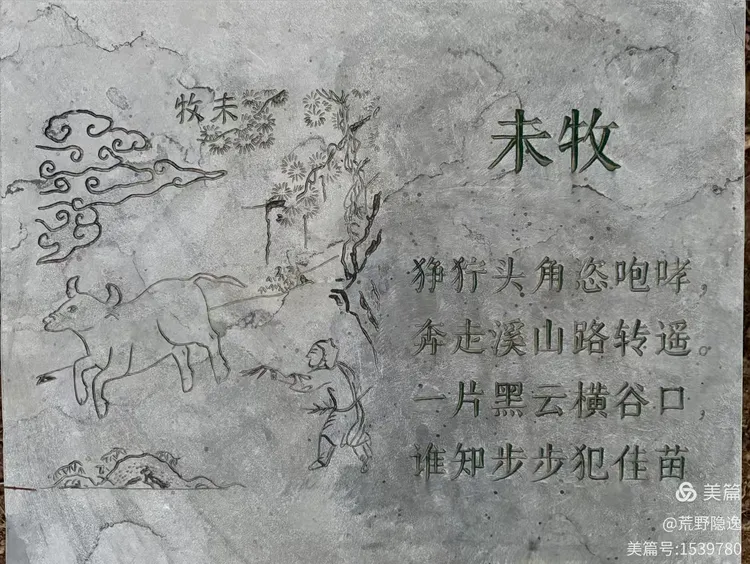 未牧
未牧
狰狞头角恣咆哮，
奔走溪山路转遥。
一片黑云横谷口，
谁知步步犯佳苗
美篇
@荒野隐逸
美篇号:1539780